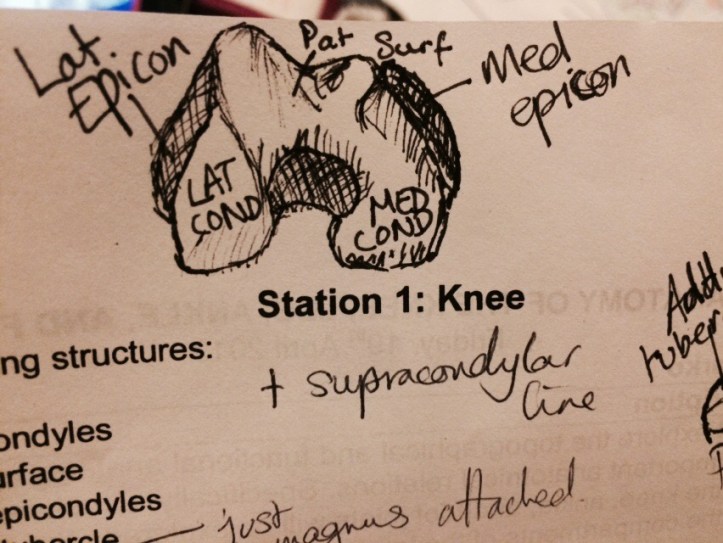 Lat.
Epicon
Pat Surf
Med
epicon
LAT
COND
MED
COND
Station 1: Knee
ng structures:
+ supracondylar
line
ondyles
urface
epicondyles
just
magnus attached.